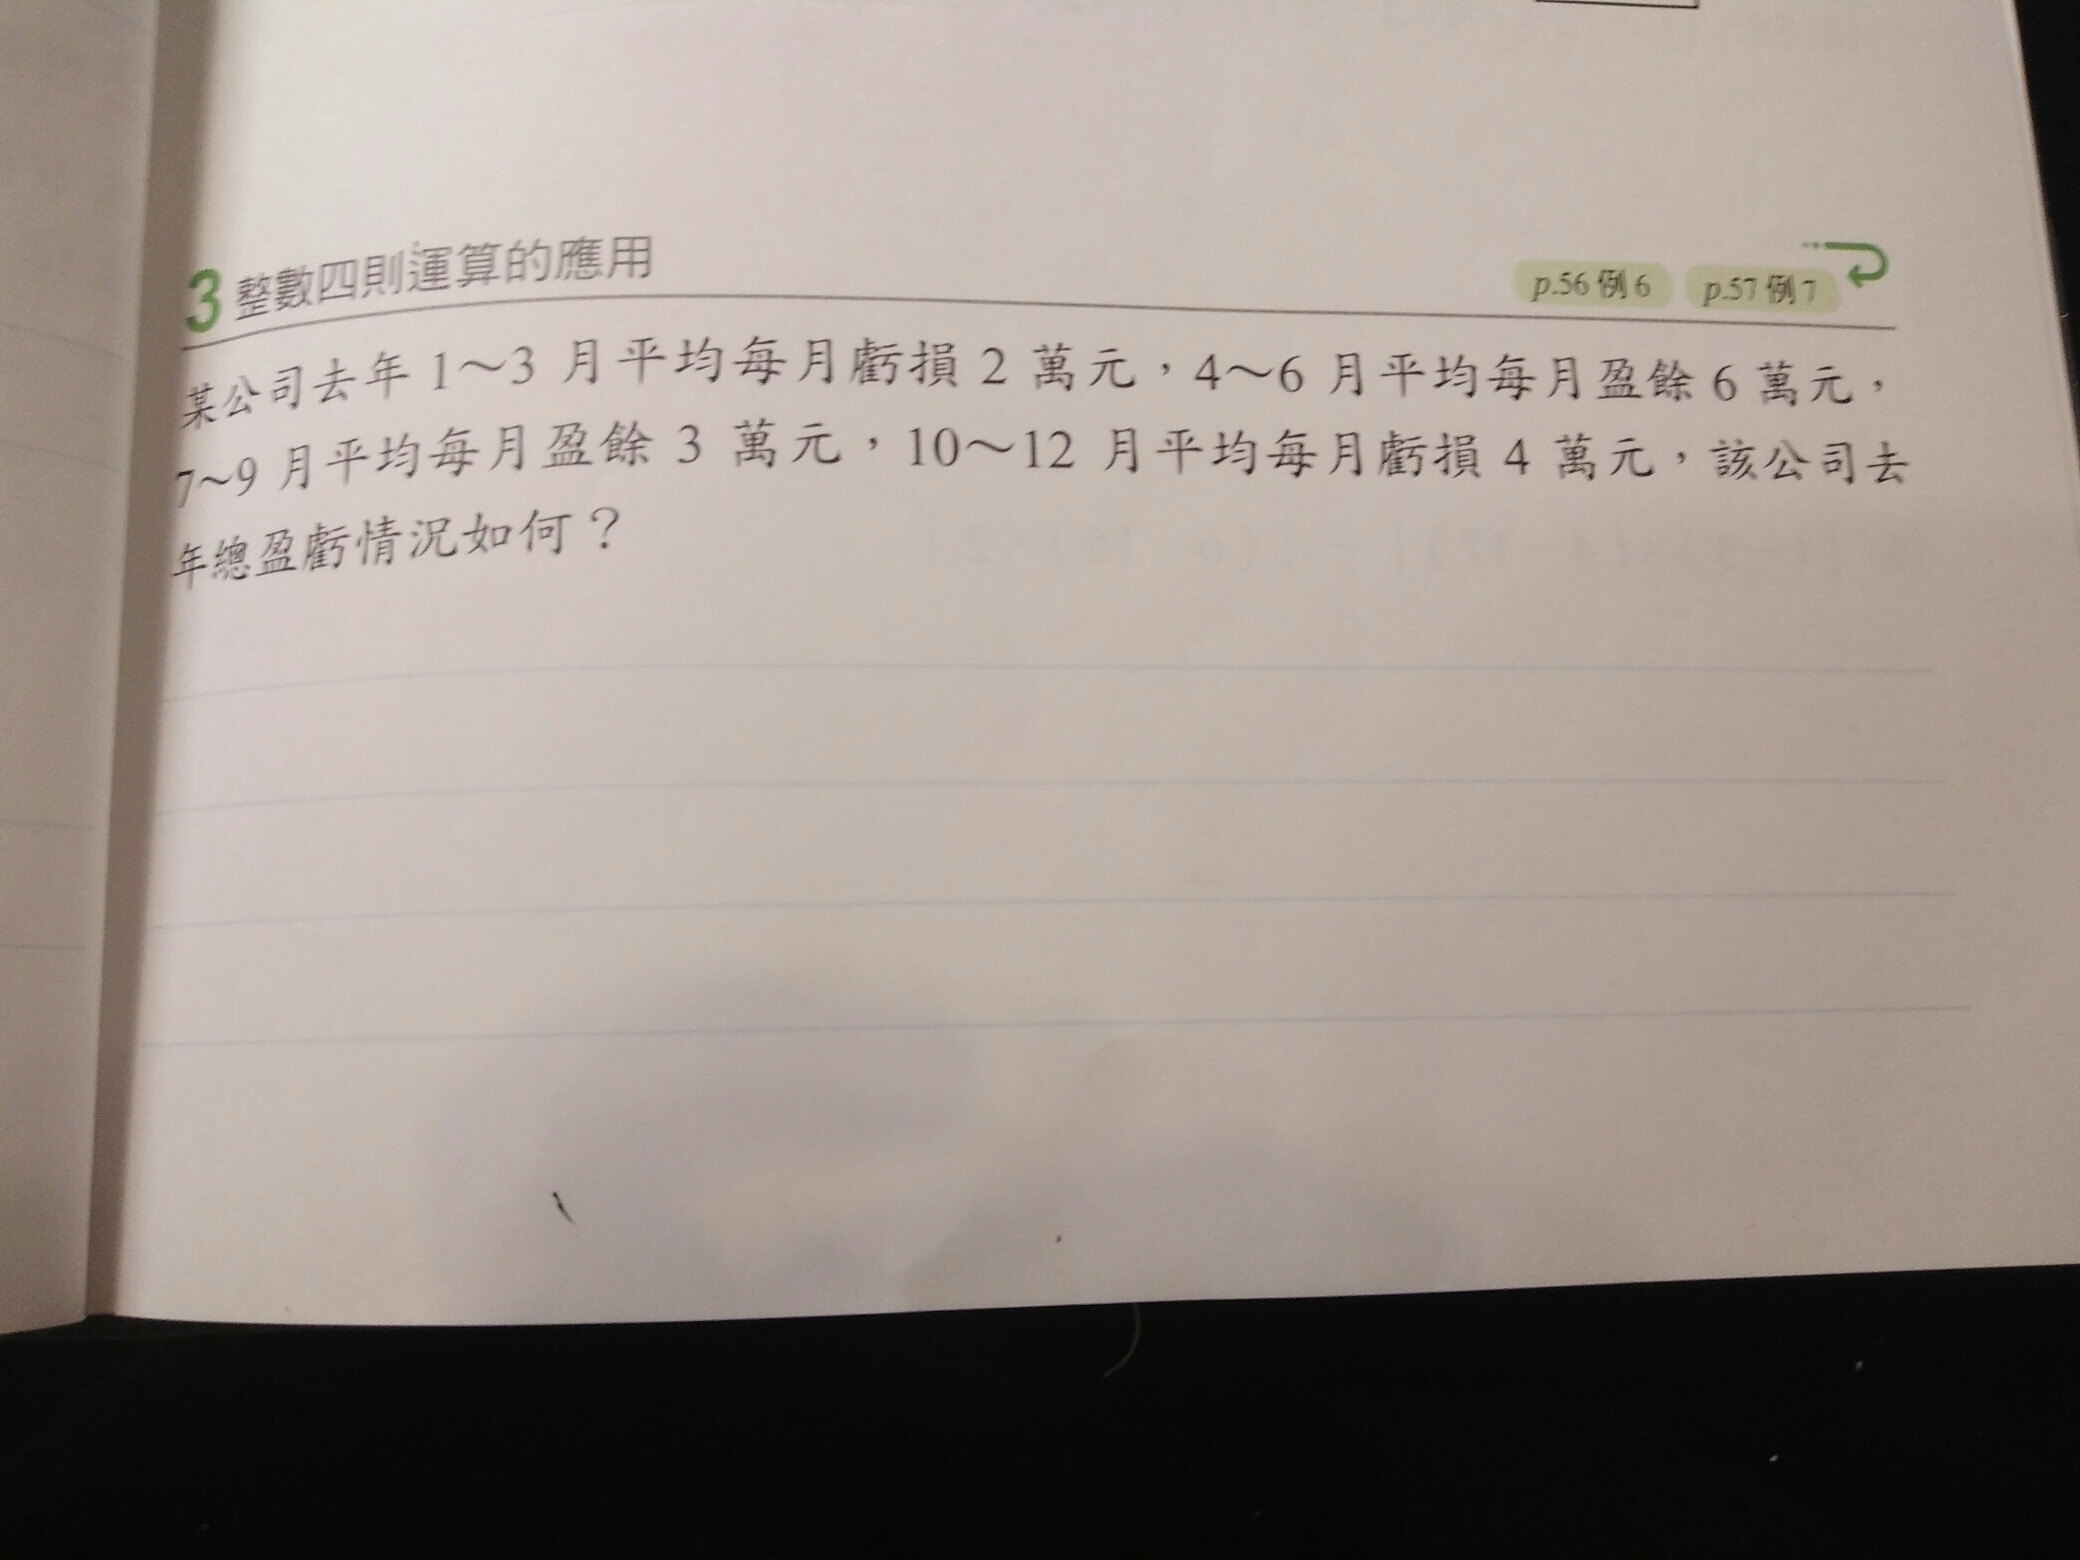 3 整數四則運算的應用
p.56 例 6 p.57 例 7
某公司去年 1～3 月平均每月虧損 2 萬元，4～6 月平均每月盈餘 6 萬元，
7～9 月平均每月盈餘 3 萬元，10～12 月平均每月虧損 4 萬元，該公司去
年總盈虧情況如何？